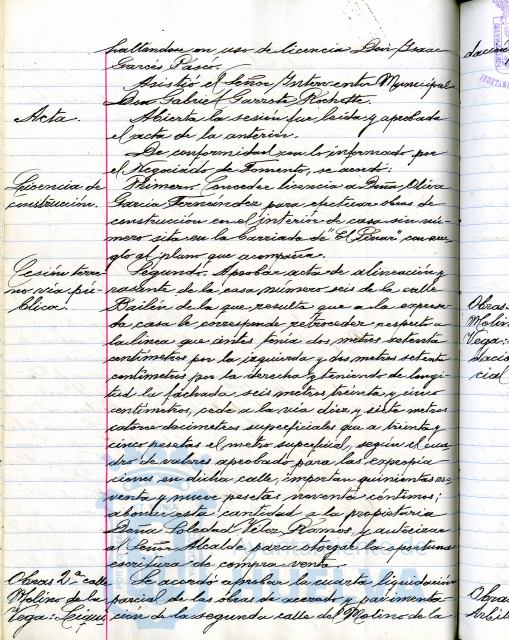 hallándose en uso de licencia Don Isaac
Garcés Pascó.
Asistió el Señor Interventor Municipal
Don Gabriel Garrote Rochette.
Acta.
Abierta la sesión fue leída y aprobada
el acta de la anterior.
De conformidad con lo informado por
el Negociado de Fomento, se acordó:
Licencia de
construcción.
Primero. Conceder licencia a Doña Oliva
García Fernández para efectuar obras de
construcción en el interior de casa sin nú-
mero sita en la barriada de "El Pinar" con arre-
glo al plano que acompaña.
Cesión terre
no vía pú-
blica.
Segundo. Aprobar acta de alineación y
rasante de la casa número seis de la calle
Bailén de la que resulta que a la expresa-
da casa le corresponde retroceder, respecto a
la línea que antes tenía dos metros setenta
centímetros por la izquierda y dos metros setenta
centímetros por la derecha y teniendo de longi-
tud la fachada, seis metros treinta y cinco
centímetros, cede a la vía diez y siete metros
catorce decímetros superficiales que a treinta y
cinco pesetas el metro superficial, según el cua-
dro de valores aprobado para las expropia
ciones en dicha calle, importan quinientas no-
venta y nueve pesetas noventa céntimos;
abonar esta cantidad a la propietaria
Doña Soledad Vélez Ramos, y autorizar
al Señor Alcalde para otorgar la oportuna
escritura de compra venta.
Obras 2ª calle
Molino de la
Vega: Liqui
Se acordó aprobar la cuarta liquidación
parcial de las obras de acerado y pavimenta-
ción de la segunda calle del Molino de la
Obras
Molin
Vega:
cial
Obras